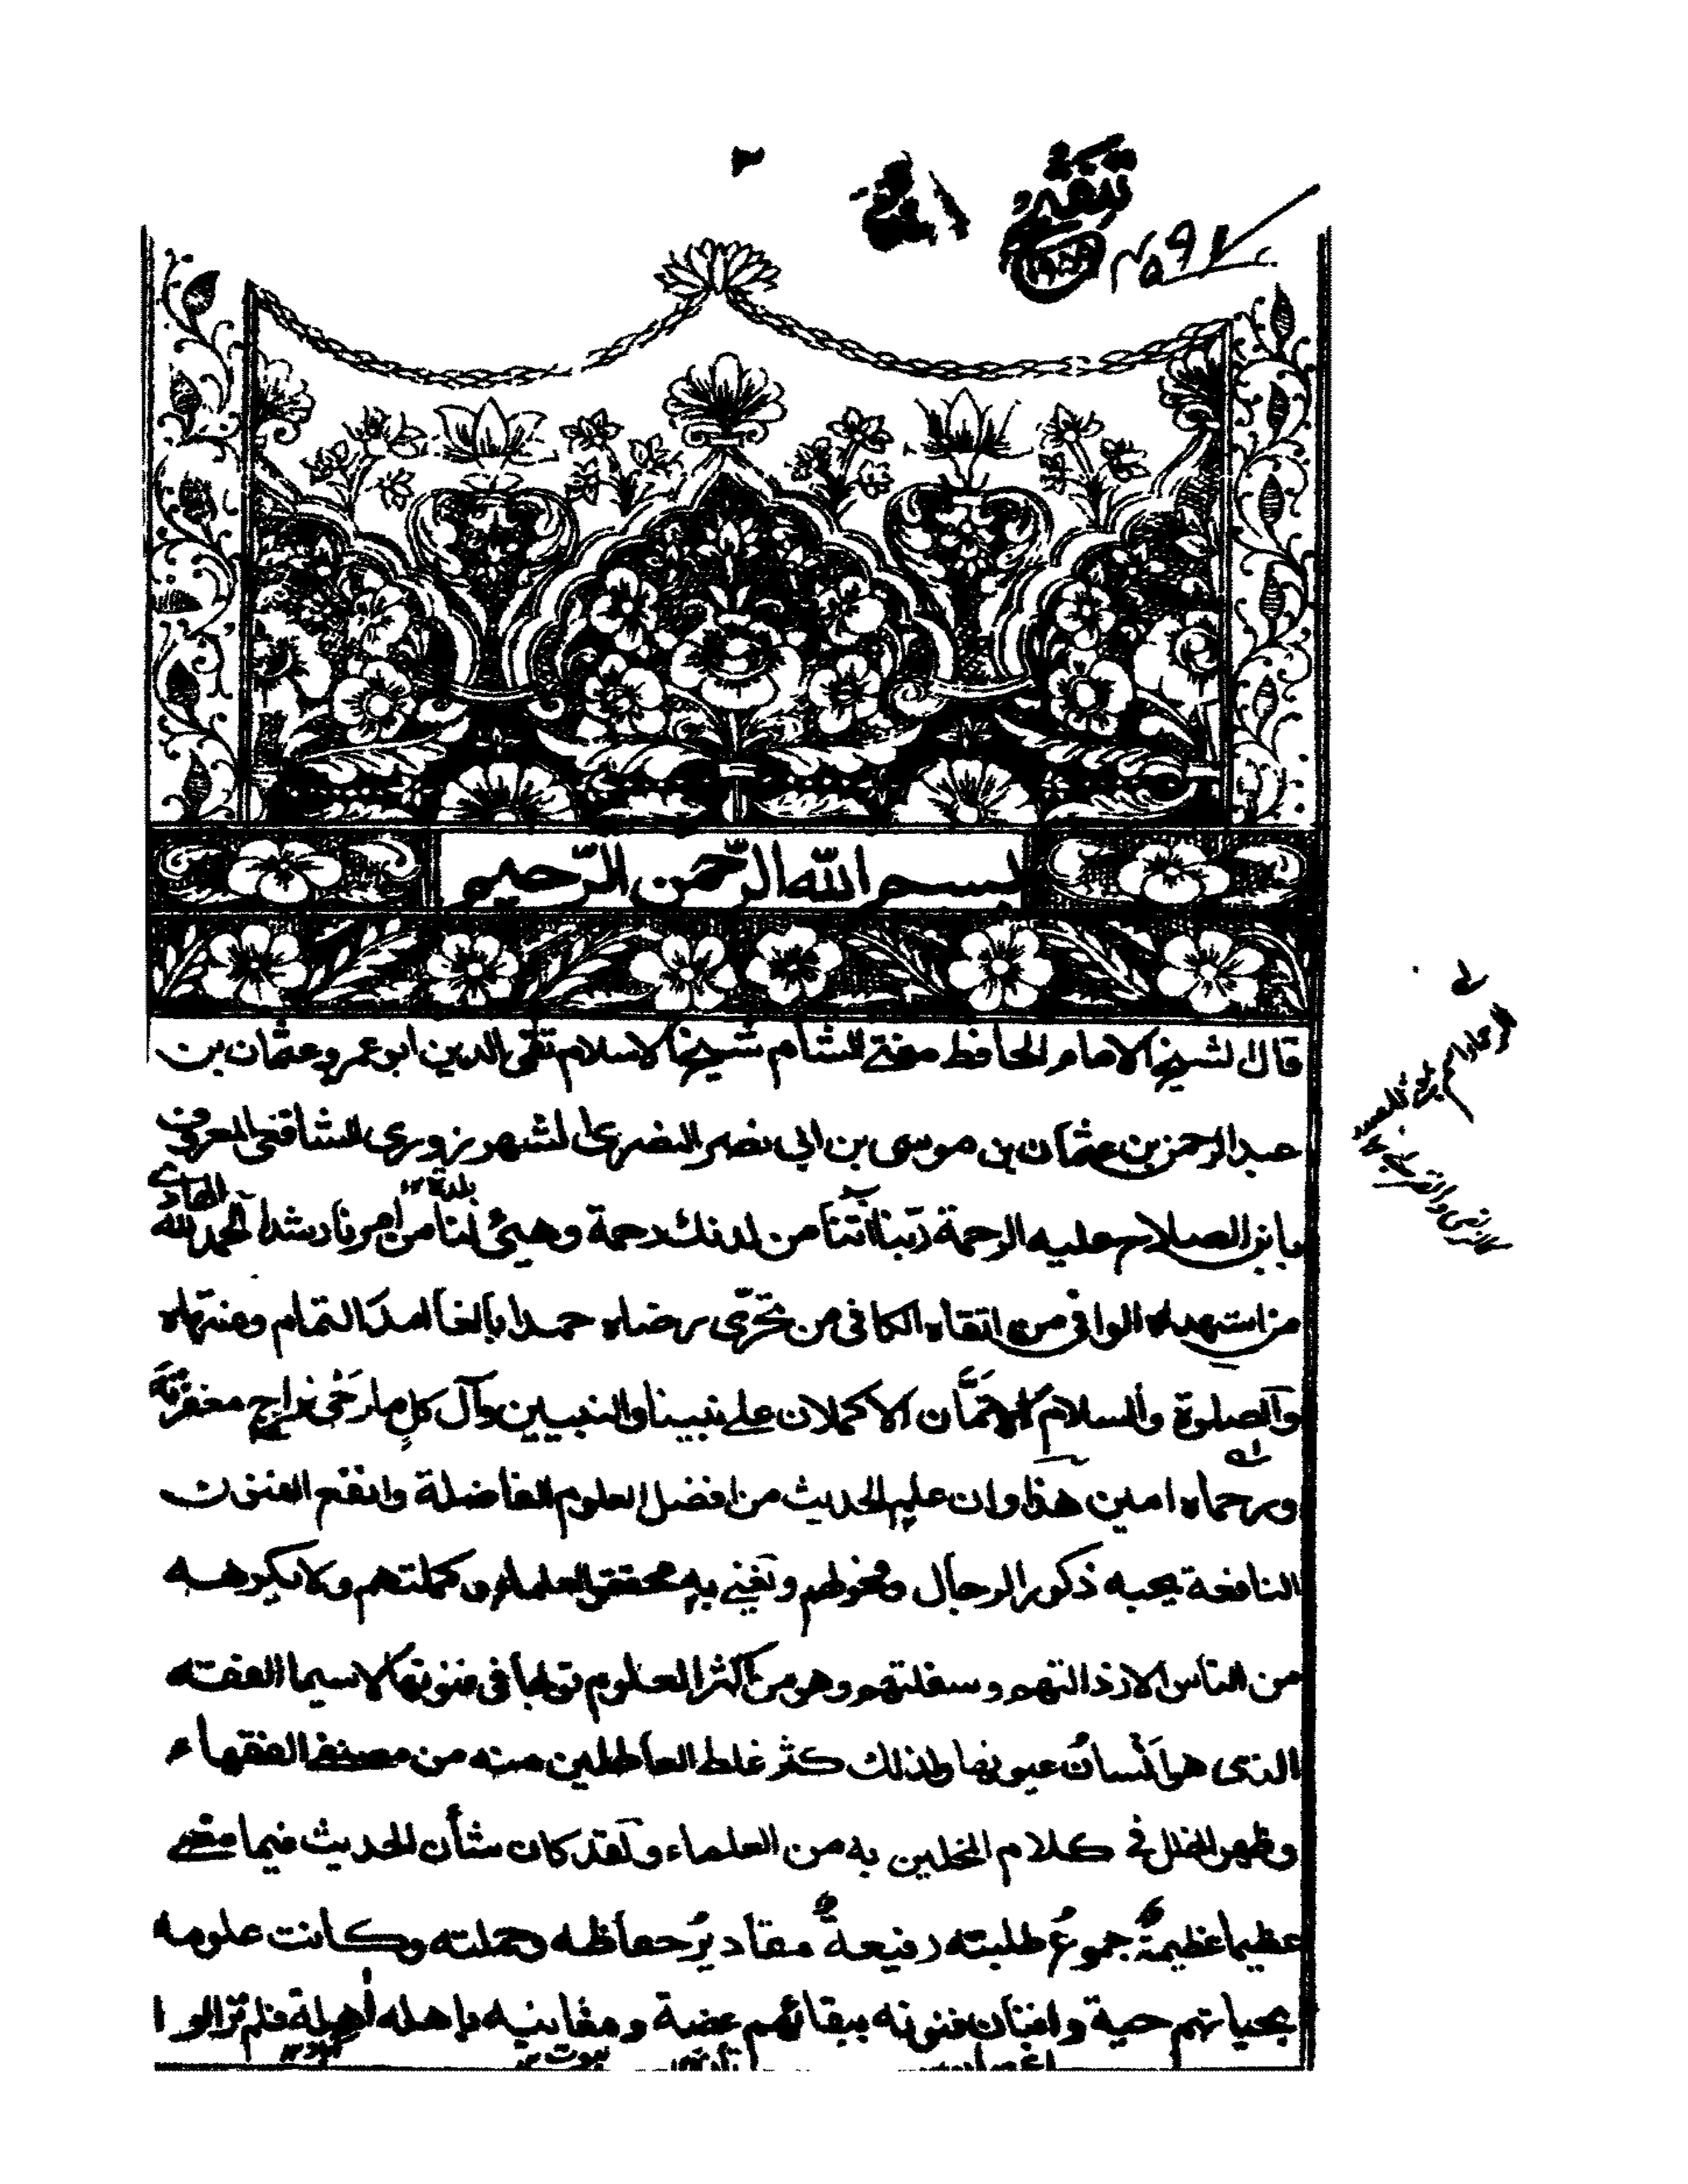 بسم الله الرّحمن الرّحيم
قال الشيخ الامام الحافظ مفتي الشام شيخ الاسلام تقي الدين ابو عمرو عثمان بن
عبد الرحمن بن عثمان بن موسى بن ابي نصر النصرى الشهرزورى الشافعي المعروف
بابن الصلاح عليه الرحمة ربّنا آتنا من لدنك رحمة وهيئ لنا من امرنا رشدا الحمد لله الهادي
من استهداه الواقي من اتقاه الكافي من تحرّى رضاه حمدا بالغا امد التمام ومنتهاه
والصلوة والسلام الاتمّان الاكملان على نبينا والنبيين وآل كلٍ ما رَجٰى راجٍ مغفرته
ورحماه امين هذا وان علم الحديث من افضل العلوم الفاضلة وانفع الفنون
النافعة يحبه ذكور الرجال وفحولهم ويعني به محققو العلماء وكملتهم ولا يكرهه
من الناس الا رذالتهم وسفلتهم وهو من اكثر العلوم تولجا في فنونها لا سيما الفقه
الذى هو اِنسانُ عيونها ولذلك كثر غلط العاطلين منه من مصنفي الفقهاء
وظهر الخلل في كلام المخلين به من العلماء ولقد كان شأن الحديث فيما مضى
عظيما عظيمةً جموعُ طلبته رفيعةً مقاديرُ حفاظه وحملته وكانت علومه
بحياتهم حية وافنان فنونه ببقائهم غضة ومغانيه باهله أهلة فلم يزالوا